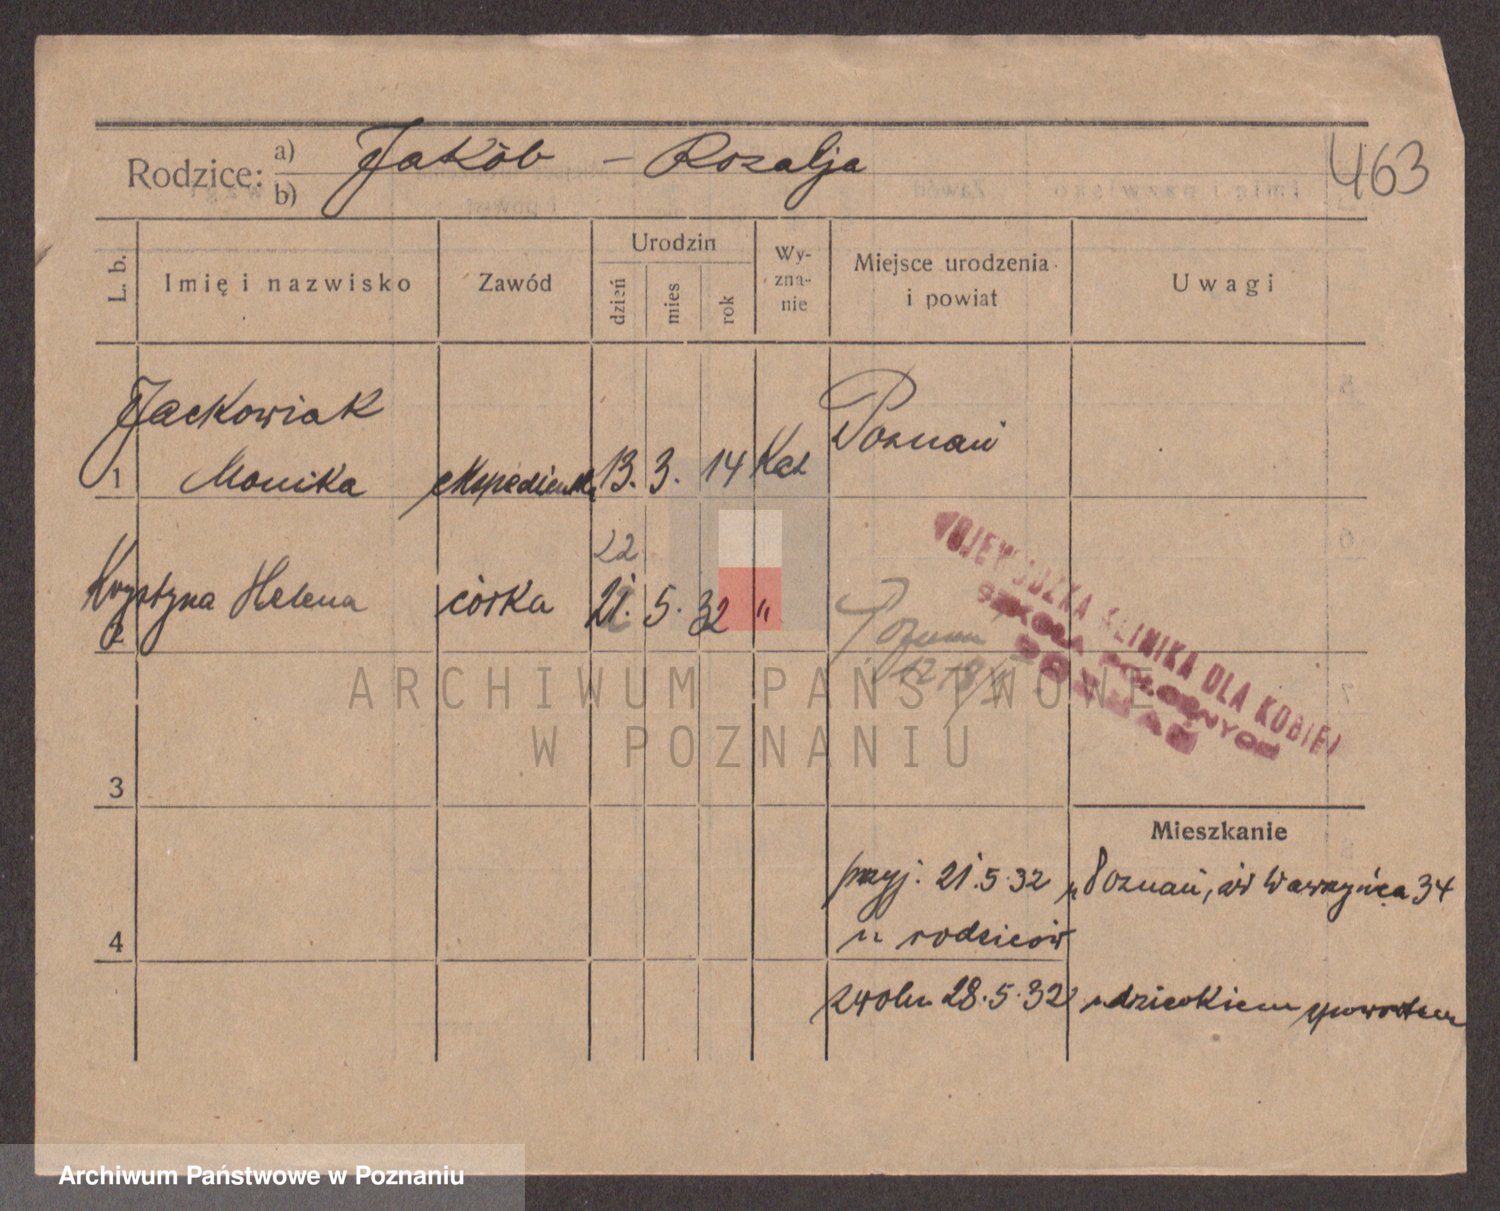 463
Rodzice: a) b) Jakób – Rozalja
L. b.
Imię i nazwisko
Zawód
Urodzin
dzień
mies
rok
Wy-
zna-
nie
Miejsce urodzenia
i powiat
Uwagi
Jackowiak
1 Monika ekspedientka 13. 3. 14 Kat Poznań
22
2 Krystyna Helena córka 21. 5. 32 " Poznań
WOJEWÓDZKA KLINIKA DLA KOBIET
SZKOŁA POŁOŻNYCH
POZNAŃ
3
Mieszkanie
przyj. 21.5.32 z Poznań, św Wawrzyńca 34
4
u rodziców
zwoln 28.5.32 z dzieckiem zpowrotem
ARCHIWUM PAŃSTWOWE
W POZNANIU
Archiwum Państwowe w Poznaniu